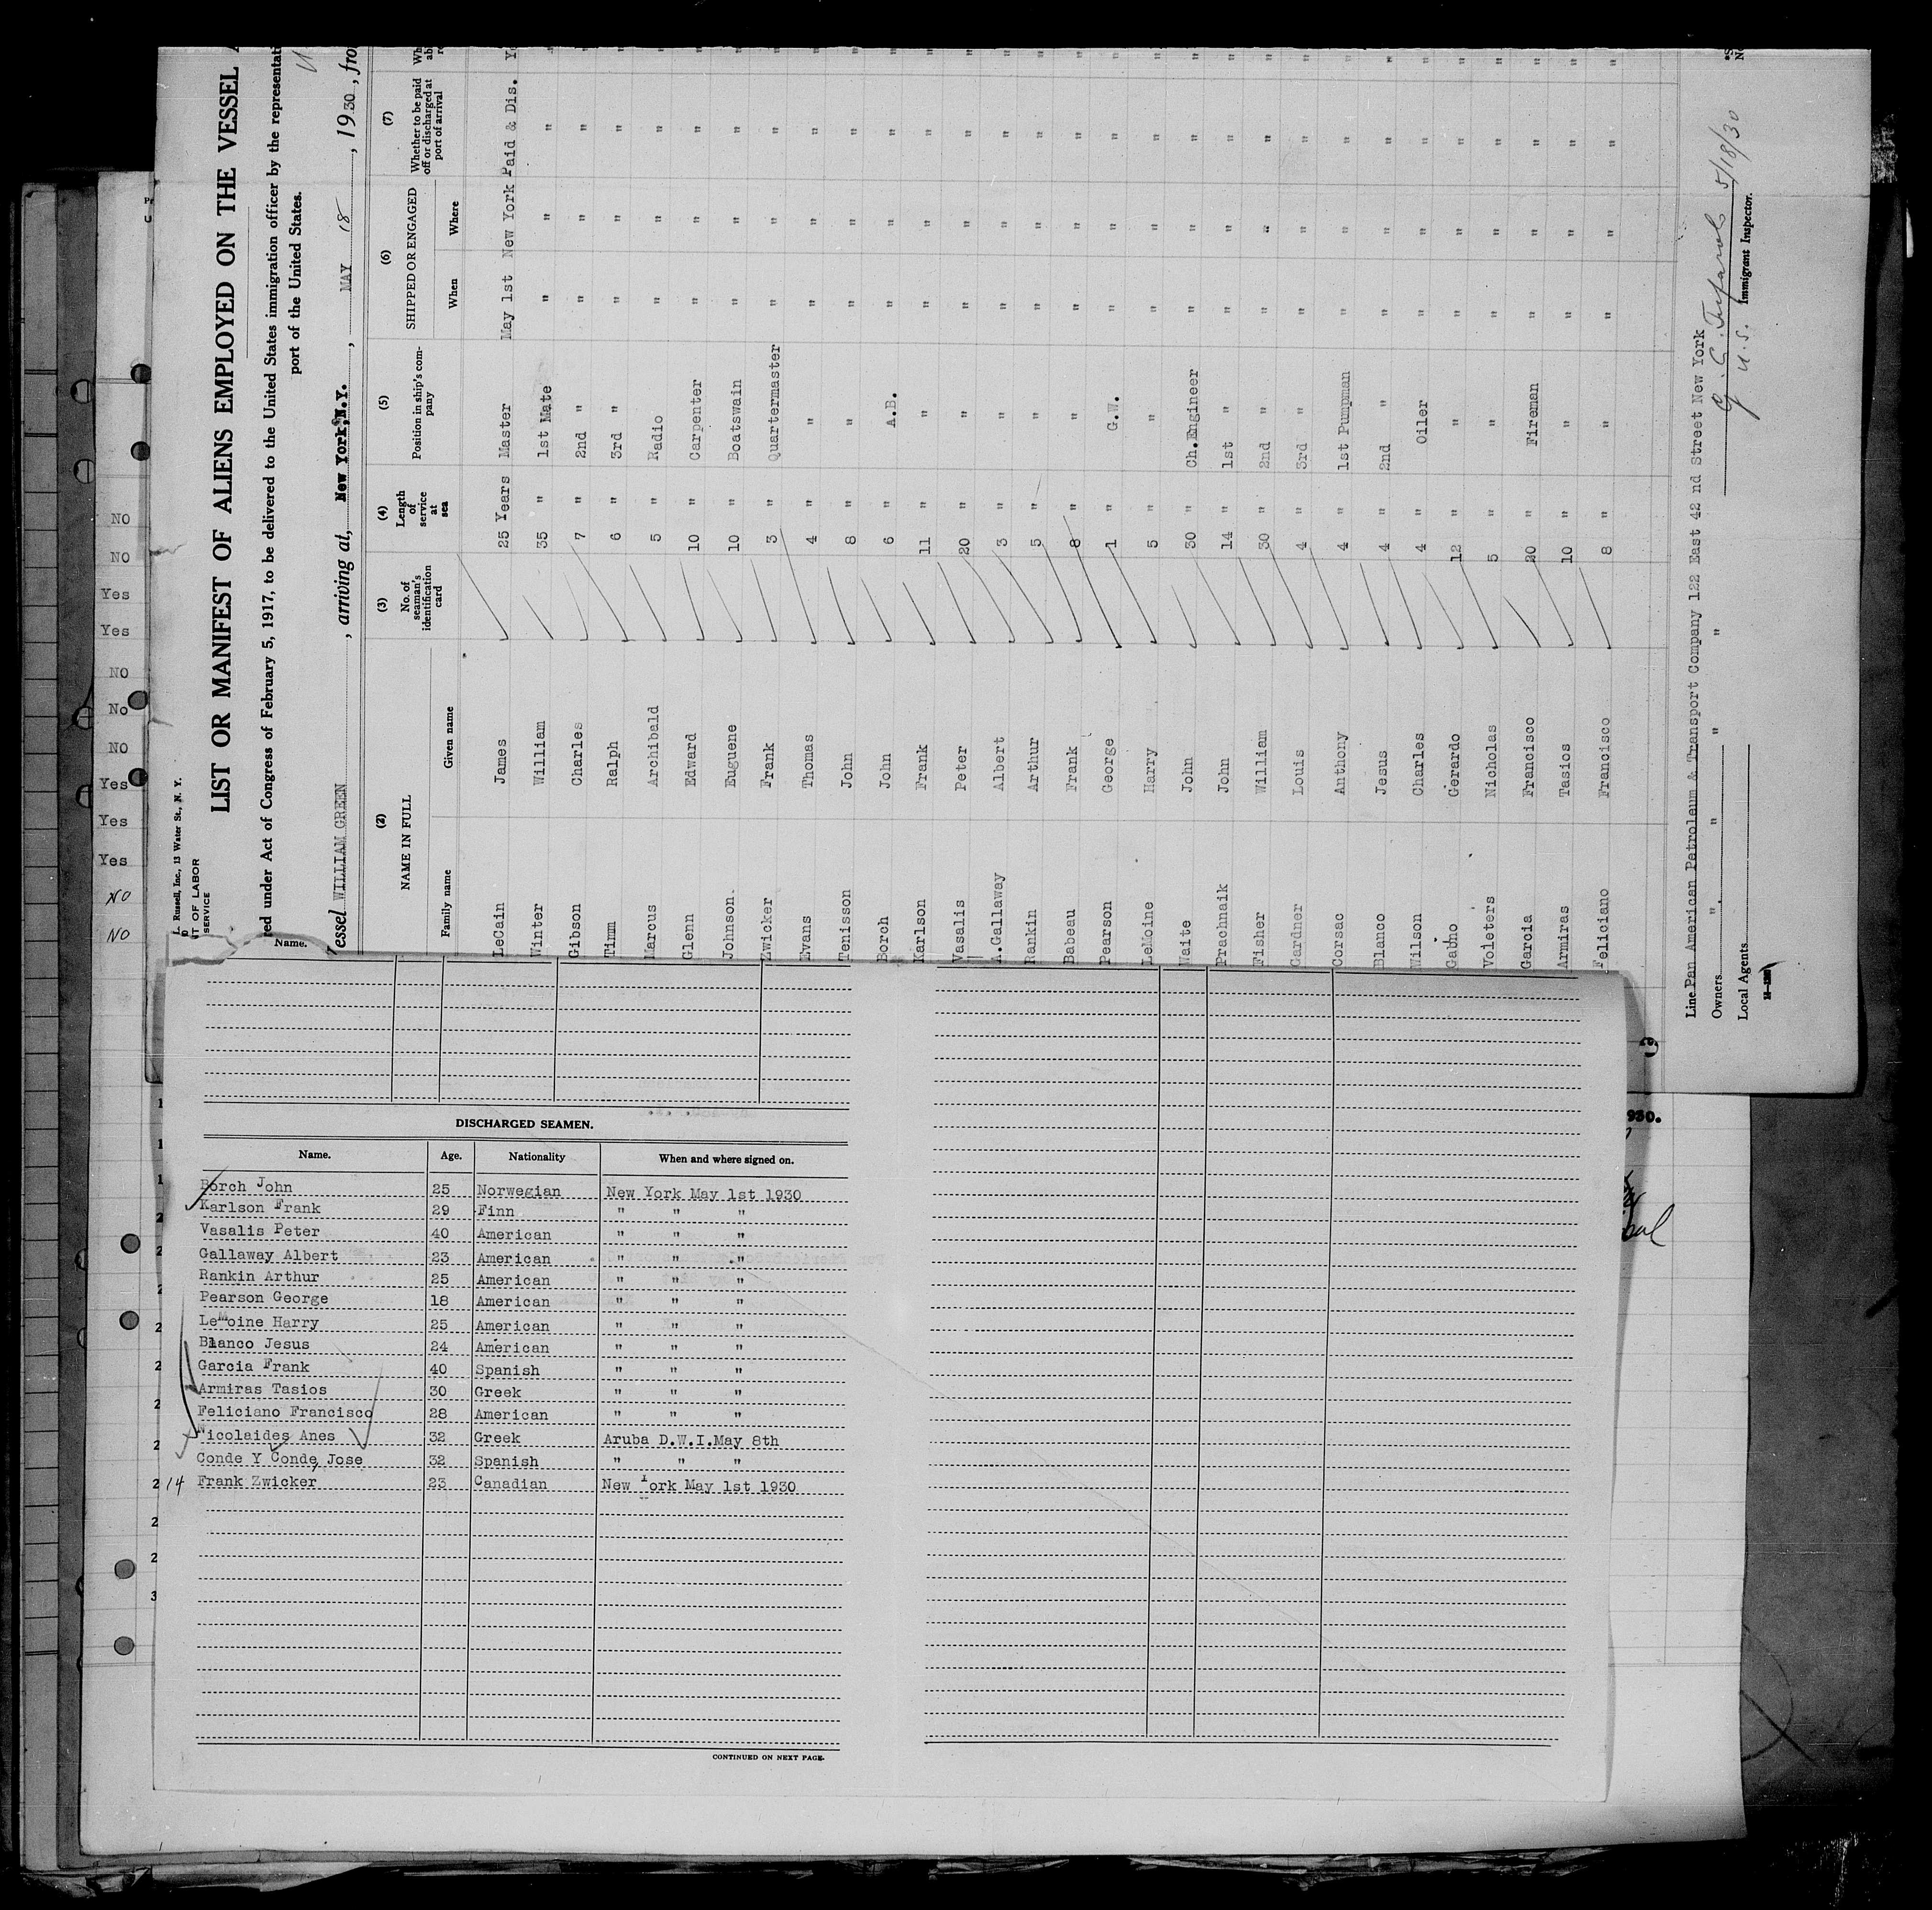 L. Russell, Inc., 13 Water St., N. Y.
T OF LABOR
SERVICE
LIST OR MANIFEST OF ALIENS EMPLOYED ON THE VESSEL
red under Act of Congress of February 5, 1917, to be delivered to the United States immigration officer by the representati
port of the United States.
Vessel WILLIAM GREEN, arriving at, New York, N.Y., MAY 18, 1930, fro
(2) (3) (4) (5) (6) (7)
NAME IN FULL No. of seaman's identification card Length of service at sea Position in ship's company SHIPPED OR ENGAGED Whether to be paid off or discharged at port of arrival
Family name Given name When Where
LeCain James 25 Years Master May 1st New York Paid & Dis.
Winter William 35 " 1st Mate " " "
Gibson Charles 7 " 2nd " " " "
Timm Ralph 6 " 3rd " " " "
Marcus Archibald 5 " Radio " " "
Glenn Edward 10 " Carpenter " " "
Johnson. Euguene 10 " Boatswain " " "
Zwicker Frank 3 " Quartermaster " " "
Evans Thomas 4 " " " " "
Tenisson John 8 " " " " "
Borch John 6 " A.B. " " "
Karlson Frank 11 " " " " "
Vasalis Peter 20 " " " " "
A.Gallaway Albert 3 " " " " "
Rankin Arthur 5 " " " " "
Babeau Frank 8 " " " " "
Pearson George 1 " G.W. " " "
LeMoine Harry 5 " " " " "
Waite John 30 " Ch.Engineer " " "
Prachnaik John 14 " 1st " " " "
Fisher William 30 " 2nd " " " "
Gardner Louis 4 " 3rd " " " "
Corsac Anthony 4 " 1st Pumpman " " "
Blanco Jesus 4 " 2nd " " " "
Wilson Charles 4 " Oiler " " "
Gerardo 12 " " " " "
Voleters Nicholas 5 " " " " "
Garcia Francisco 20 " Fireman " " "
Armiras Tasios 10 " " " " "
Feliciano Francisco 8 " " " " "
Line Pan American Petroleum & Transport Company 122 East 42 nd Street New York
Owners " " " "
Local Agents
5/18/30
U.S. Immigrant Inspector.
NO
NO
Yes
Yes
NO
No
NO
Yes
Yes
Yes
NO
NO
Name.
930.
DISCHARGED SEAMEN.
Name. Age. Nationality When and where signed on.
Borch John 25 Norwegian New York May 1st 1930
Karlson Frank 29 Finn " " "
Vasalis Peter 40 American " " "
Gallaway Albert 23 American " " "
Rankin Arthur 25 American " " "
Pearson George 18 American " " "
LeMoine Harry 25 American " " "
Blanco Jesus 24 American " " "
Garcia Frank 40 Spanish " " "
Armiras Tasios 30 Greek " " "
Feliciano Francisco 28 American " " "
Nicolaides Anes 32 Greek Aruba D.W.I.May 8th
Conde Y Conde, Jose 32 Spanish " " "
14 Frank Zwicker 23 Canadian New York May 1st 1930
CONTINUED ON NEXT PAGE.